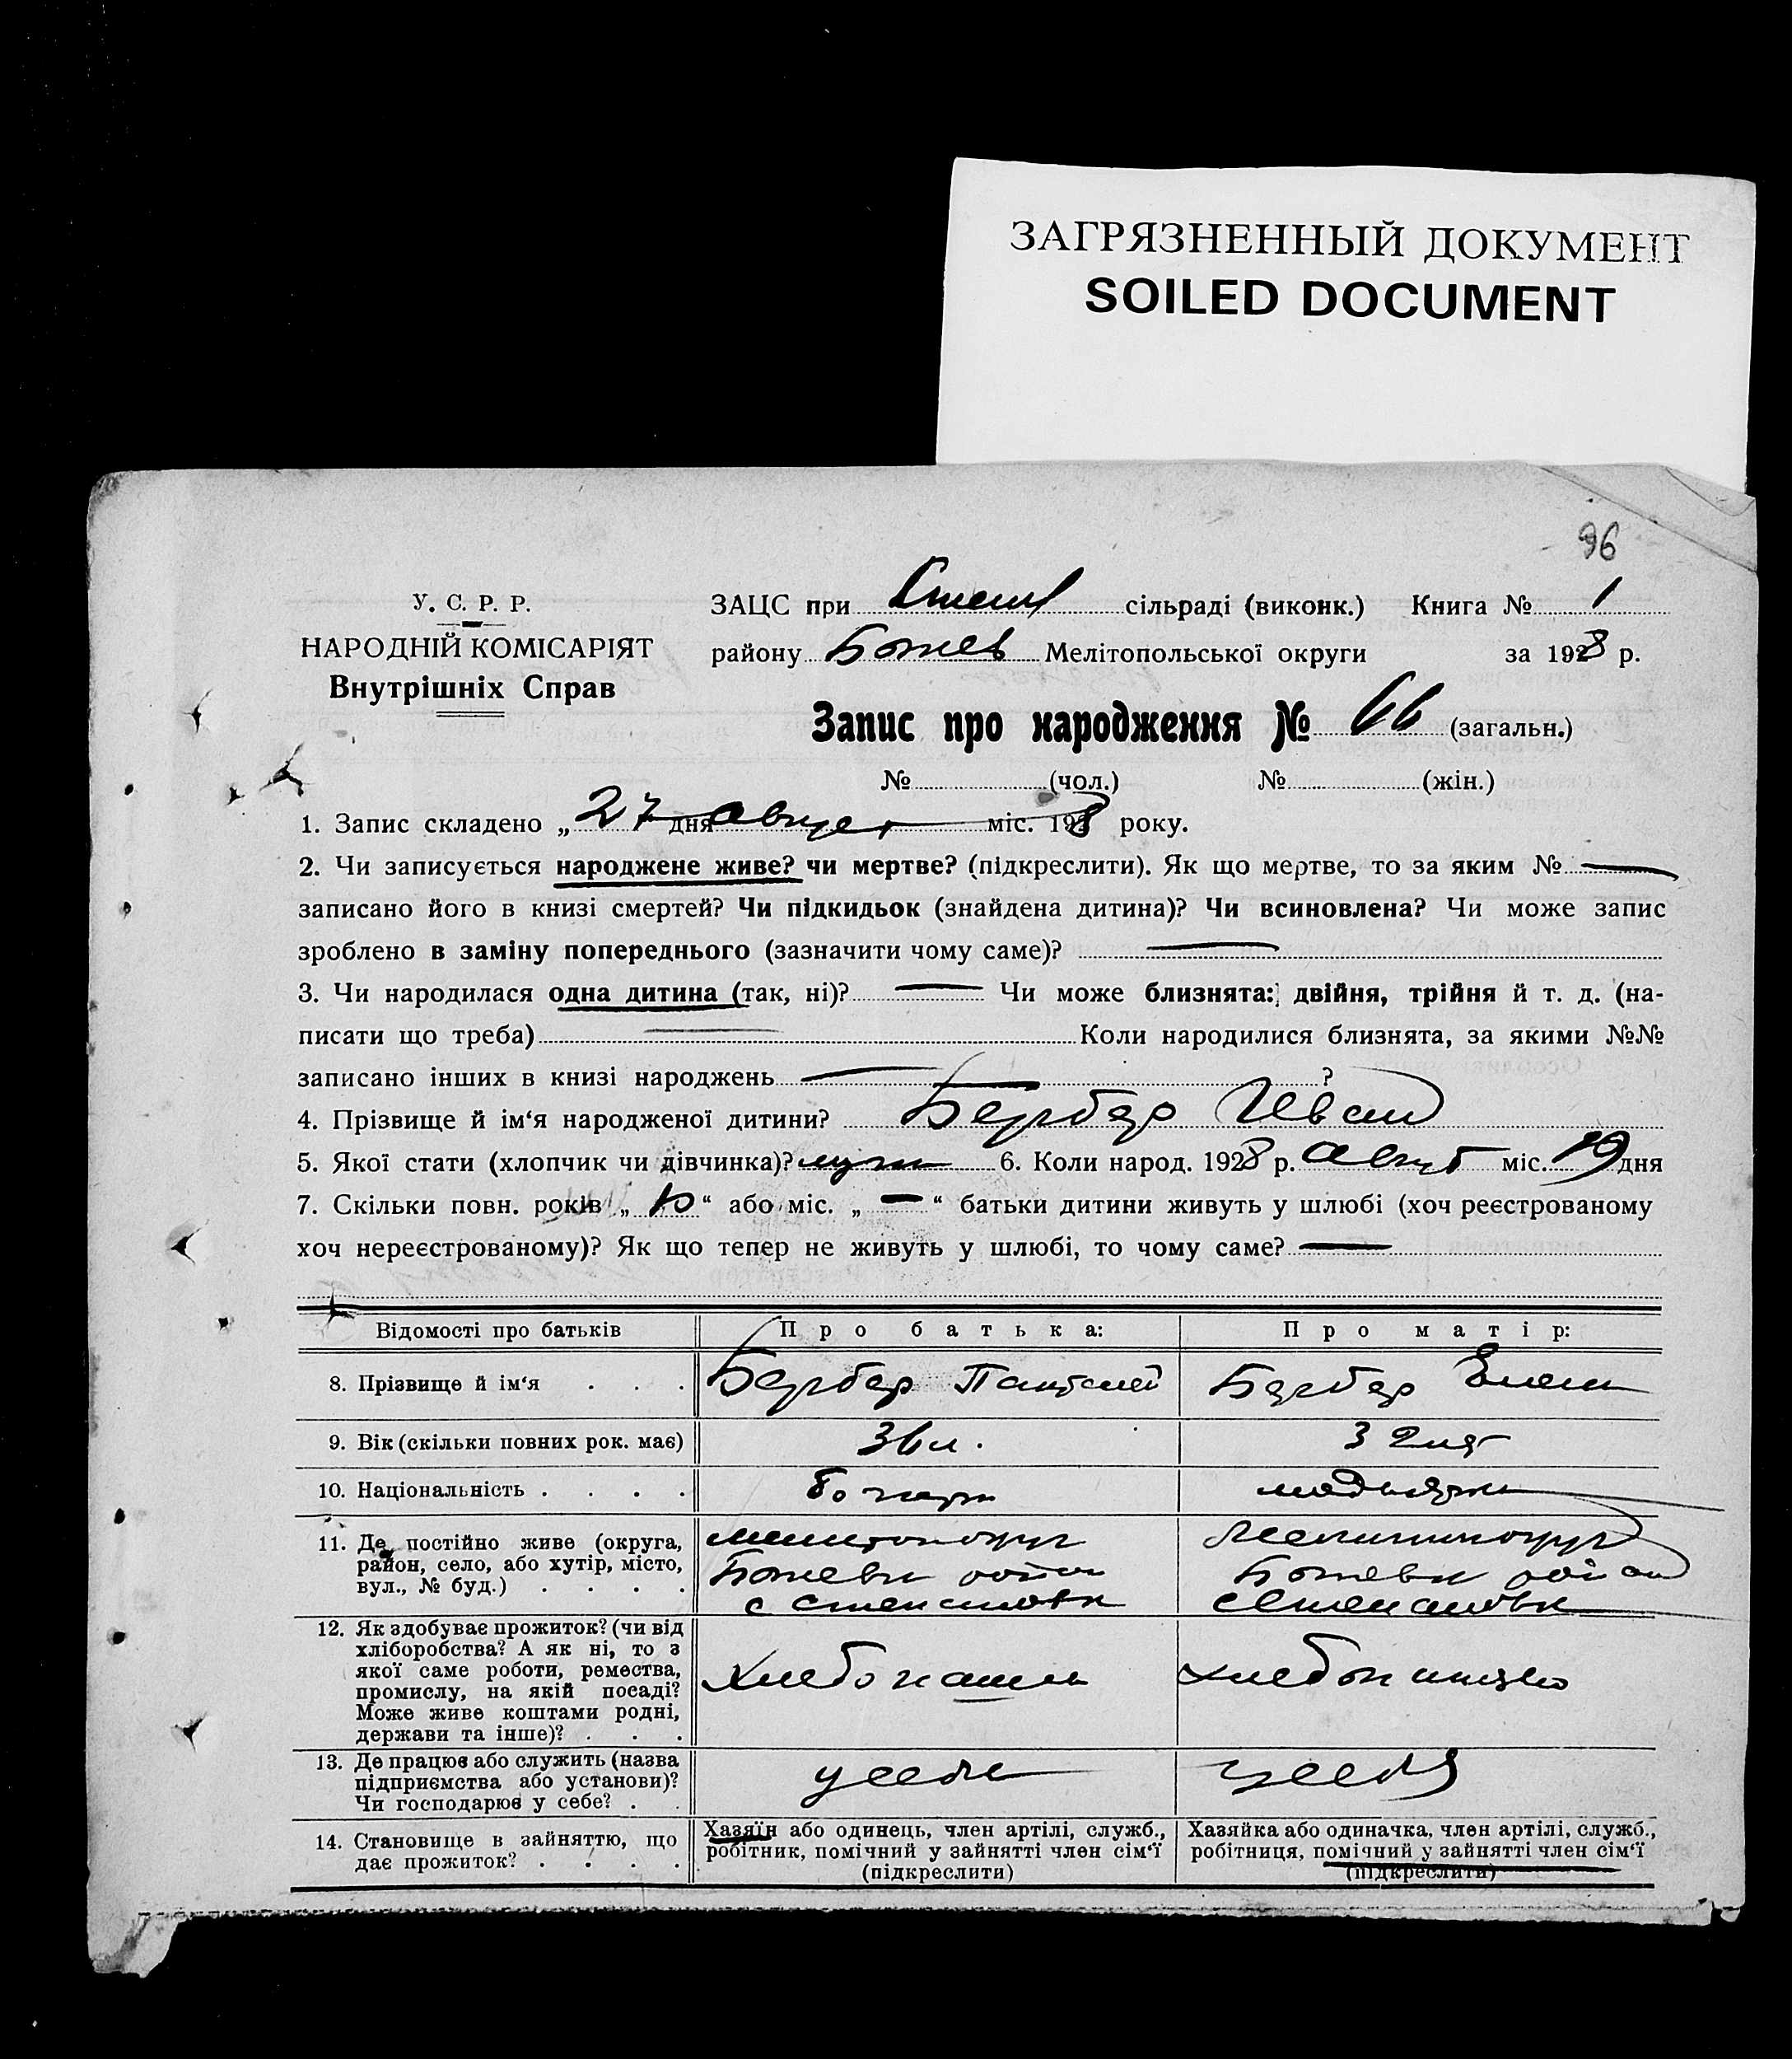 ЗАГРЯЗНЕННЫЙ ДОКУМЕНТ
SOILED DOCUMENT
96
У. С. Р. Р.
НАРОДНІЙ КОМІСАРІЯТ
Внутрішніх Справ
ЗАЦС при Степан сільраді (виконк.) Книга № 1
району Ботієв Мелітопольської округи за 1928 р.
Запис про народження № 66 (загальн.)
№ (чол.) № (жін.)
1. Запис складено „ 27 дня август міс. 1928 року.
2. Чи записується народжене живе? чи мертве? (підкреслити). Як що мертве, то за яким № —
записано його в книзі смертей? Чи підкидьок (знайдена дитина)? Чи всиновлена? Чи може запис
зроблено в заміну попереднього (зазначити чому саме)? —
3. Чи народилася одна дитина (так, ні)? — Чи може близнята: двійня, трійня й т. д. (на-
писати що треба) — Коли народилися близнята, за якими №№
записано інших в книзі народжень — ?
4. Прізвище й ім‘я народженої дитини? Бербер Иван
5. Якої стати (хлопчик чи дівчинка)? муж 6. Коли народ. 1928 р. август міс. 19 дня
7. Скільки повн. років „ 10 “ або міс. „ — “ батьки дитини живуть у шлюбі (хоч реєстрованому
хоч нереєстрованому)? Як що тепер не живуть у шлюбі, то чому саме? —
Відомості про батьків Про батька: Про матір:
8. Прізвище й ім‘я . . . Бербер Пантелей Бербер Елена
9. Вік (скільки повних рок. має) 36 л. 32 лет
10. Національність . . . .
11. Де постійно живе (округа,
район, село, або хутір, місто,
вул., № буд.) . . . .
Мелитопокруг Мелитопокруг
Ботиевк район Ботиевк район
с Степановк с Степановк
12. Як здобуває прожиток? (чи від
хліборобства? А як ні, то з
якої саме роботи, ремества,
промислу, на якій посаді?
Може живе коштами родні,
держави та інше)? . . .
хлебопаш хлебопашество
13. Де працює або служить (назва
підприємства або установи)?
Чи господарює у себе? . .
у себе у себя
14. Становище в зайняттю, що
дає прожиток? . . . .
Хазяїн або одинець, член артілі, служб.,
робітник, помічний у зайнятті член сім‘ї
(підкреслити)
Хазяйка або одиначка, член артілі, служб.,
робітниця, помічний у зайнятті член сім‘ї
(підкреслити)